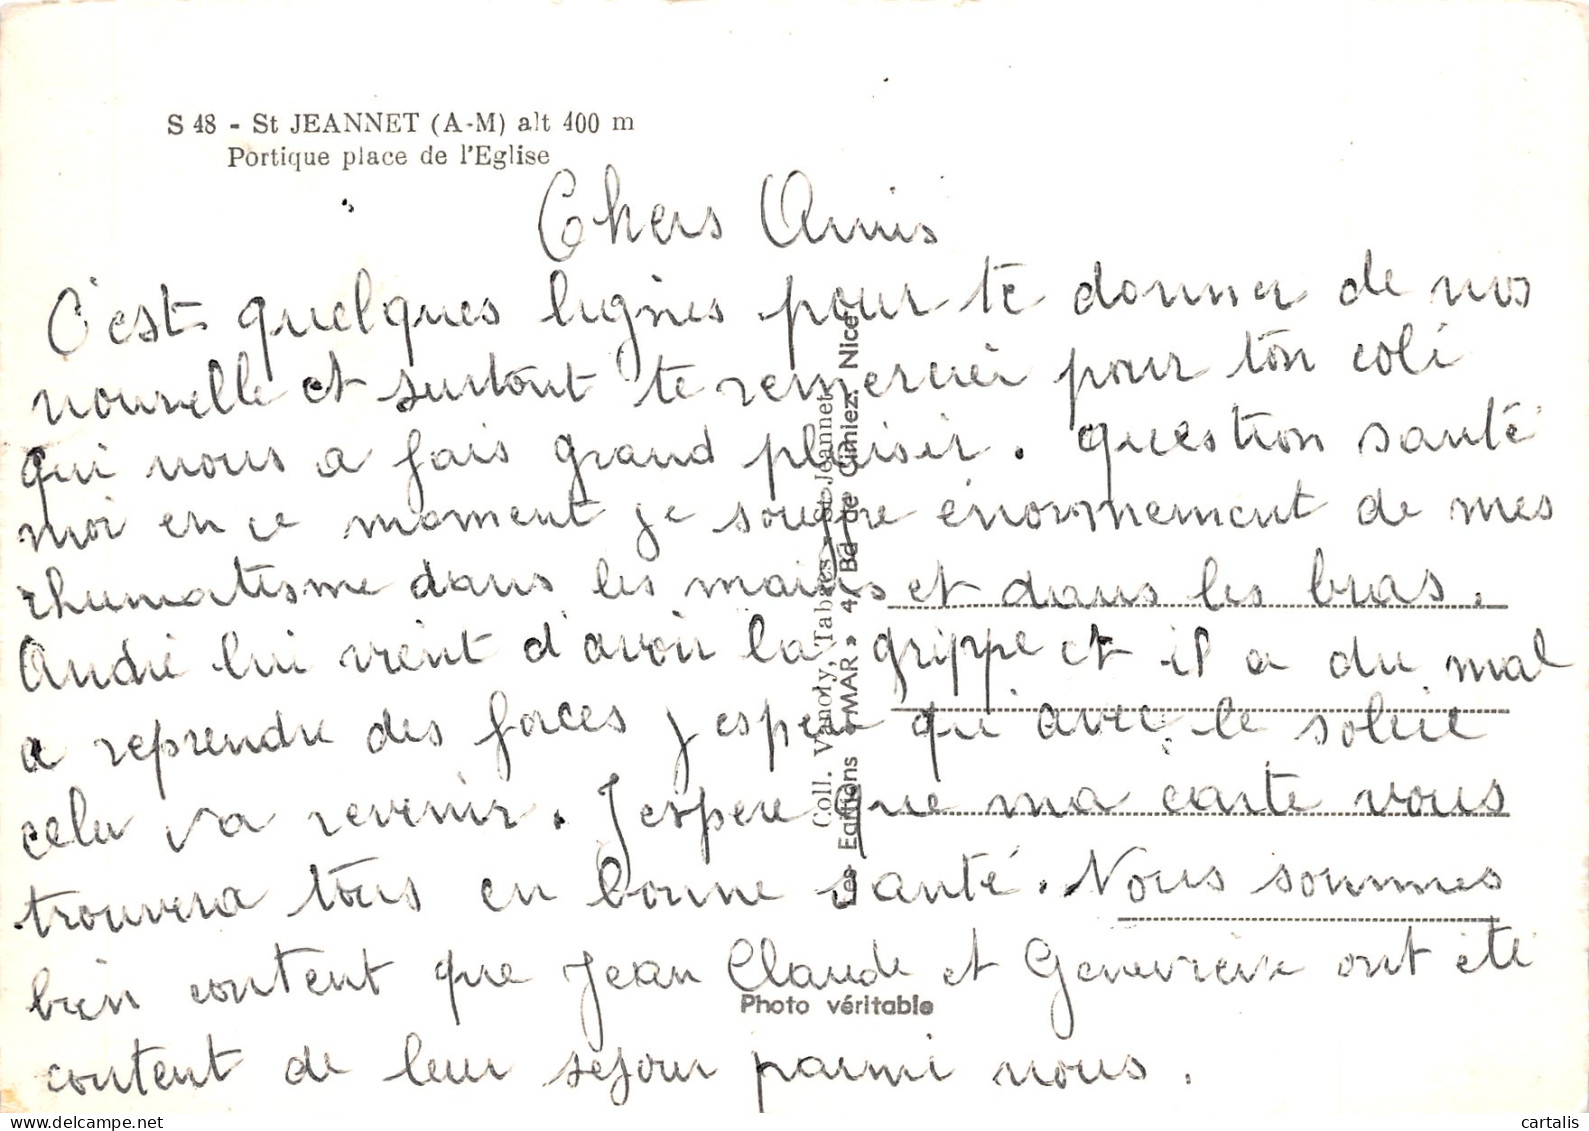 S 48 - St JEANNET (A-M) alt 400 m
Portique place de l'Eglise
Chers Amis
C'est quelques lignes pour te donner de nos
nouvelle et surtout te remercier pour ton coli
qui nous a fais grand plaisir. question santé
moi en ce moment je souffre énormement de mes
rhumatisme dans les mains et dans les bras.
André lui vient d'avoir la grippe et il a du mal
a reprendre des forces j'espere qu'avec le soleil
cela va revenir. J'espere que ma carte vous
trouvera tous en bonne santé. Nous sommes
bien content que Jean Claude et Genevieve ont été
content de leur sejour parmi nous.
Coll. Vanoly, Tabacs - St-Jeannet
Les Editions «MAR» 4, Bd de Cimiez, Nice
Photo véritable
delcampe.net
cartalis